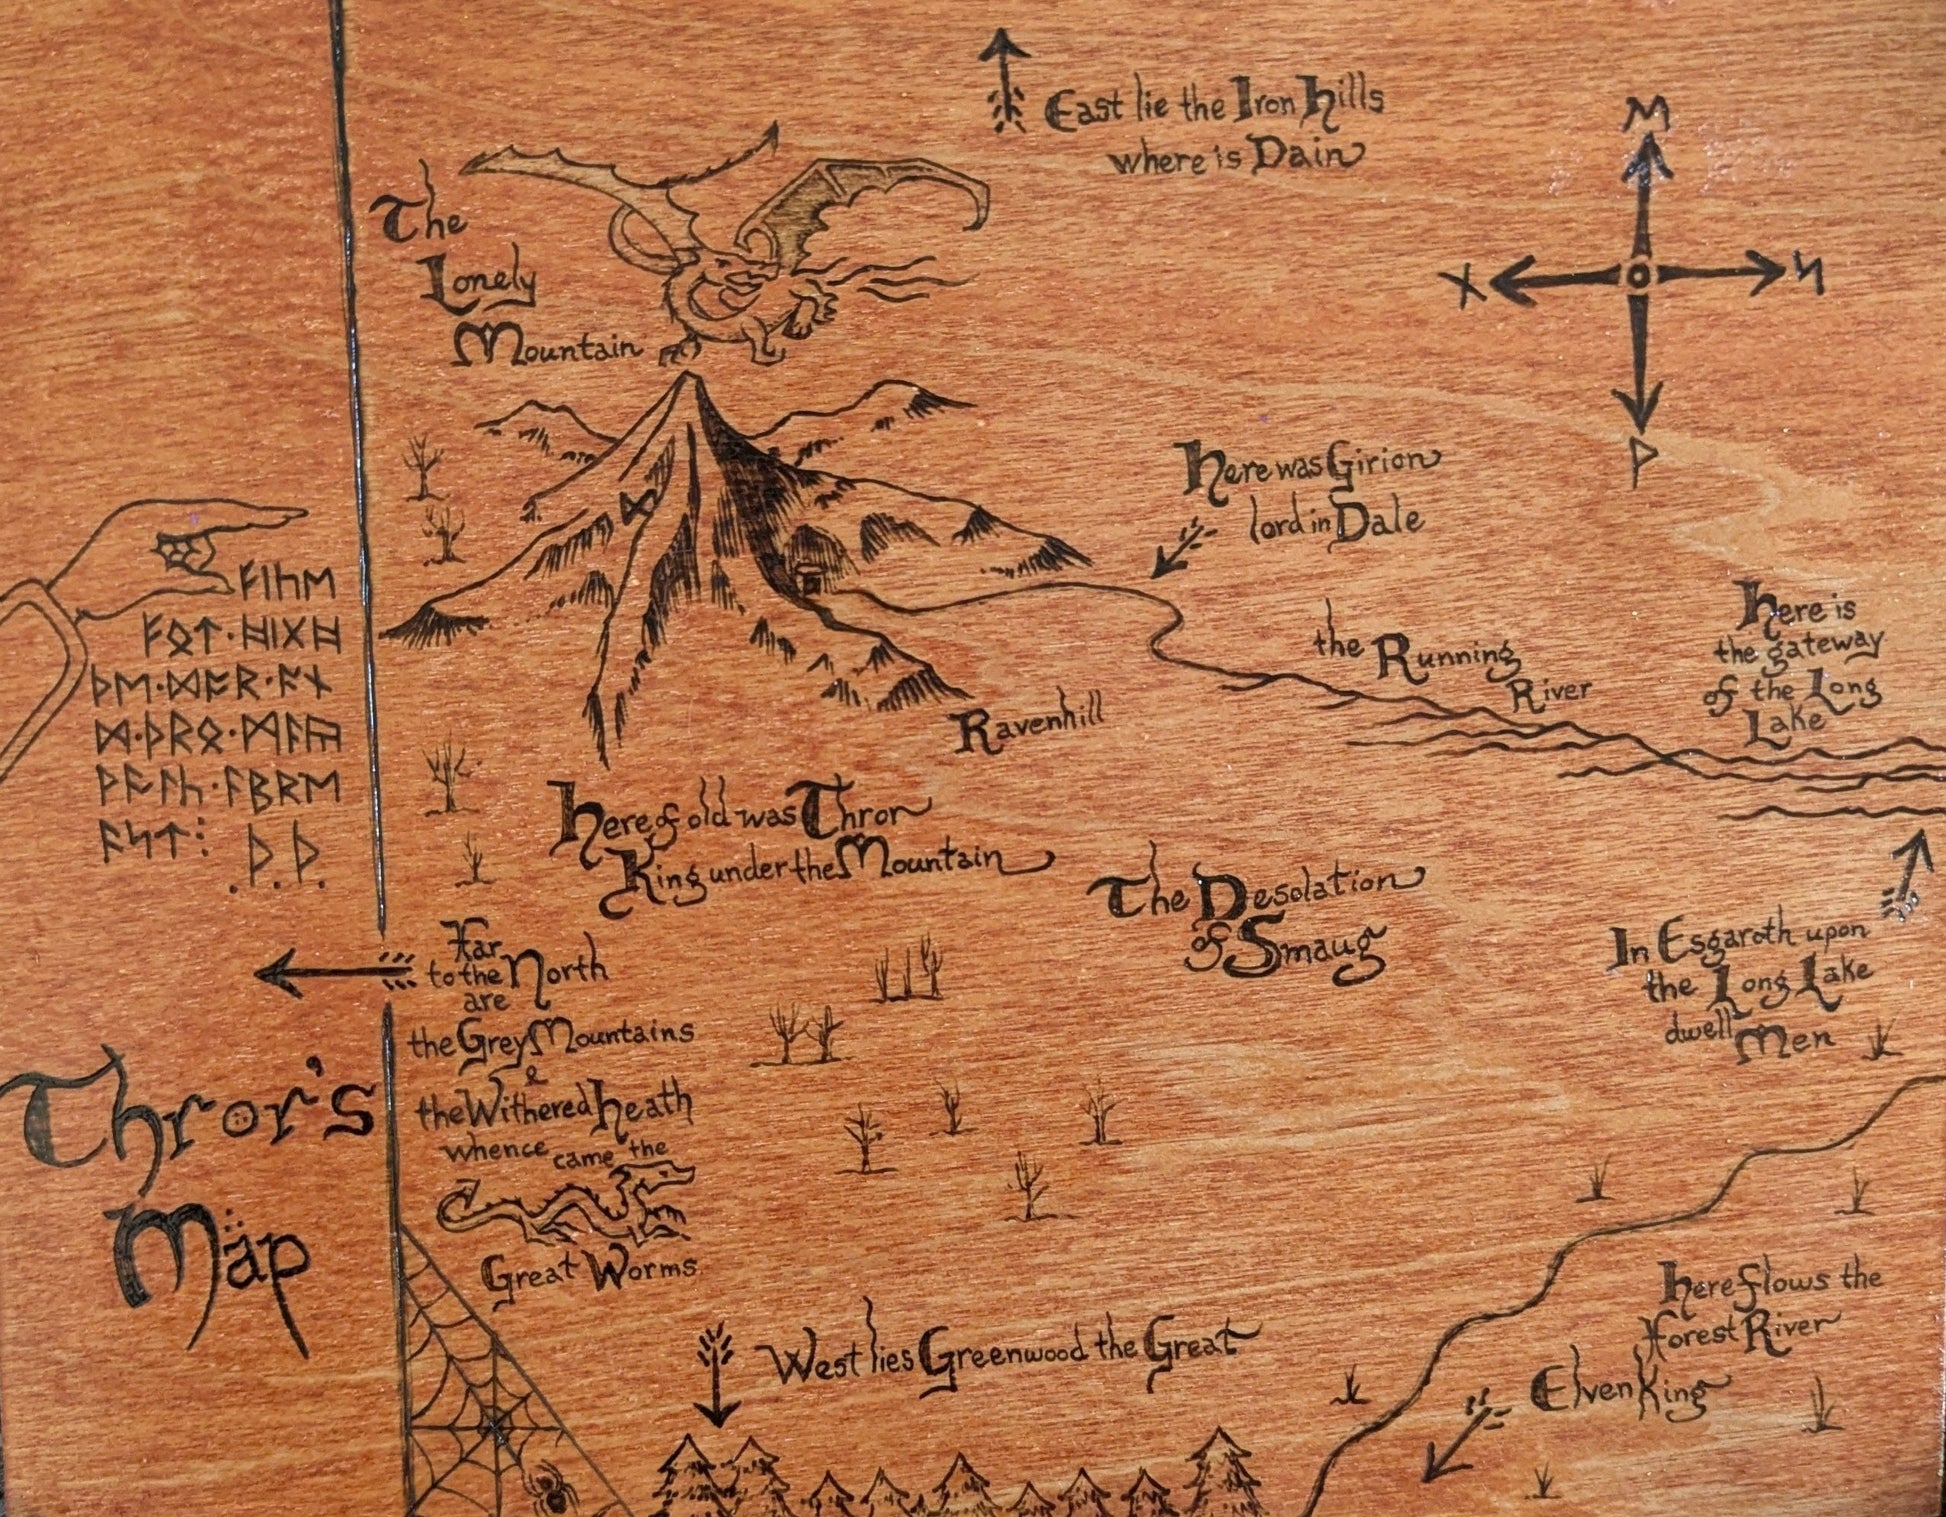 East lie the Iron Hills
where is Dain
ᛗ
ᚷ
ᛋ
ᚹ
The
Lonely
Mountain
ᛞ
Here was Girion
lord in Dale
the Running
River
Here is
the gateway
of the Long
Lake
ᚠᛁᚢᛖ
ᚠᛟᛏ·ᚻᛁᚷᚻ
ᚦᛖ·ᛞᚩᚱ·ᚪᚾ
ᛞ·ᚦᚱᛟ·ᛗᚪᚣ
ᚹᚪᛚᚳ·ᚪᛒᚱᛖ
ᚪᛋᛏ:
.ᚦ.ᚦ.
Ravenhill
Here of old was Thror
King under the Mountain
The Desolation
of Smaug
In Esgaroth upon
the Long Lake
dwell Men
Far
to the North
are
the Grey Mountains
&
the Withered Heath
whence came the
Great Worms
Thror's
Map
West lies Greenwood the Great
Here flows the
Forest River
Elven King